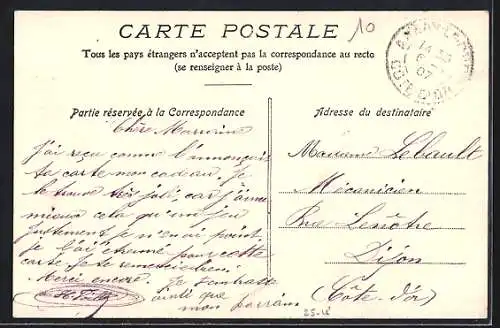 CARTE POSTALE
10
Tous les pays étrangers n'acceptent pas la correspondance au recto
(se renseigner à la poste)
14
6
07
CÔTE D'OR
Partie réservée à la Correspondance
Adresse du destinataire
Chère Marraine
J'ai reçu comme l'annonçait
ta carte mon cadeau. Je
le trouve très joli, car j'aime
mieux cela qu'un jeu
justement je n'en ai point
je t'ai étrenné par cette
carte. Je te remercie bien.
Merci encore. Je t'embrasse
ainsi que
mon parrain
Madame Lebault
Mécanicien
Rue Lenôtre
Dijon
(Côte d'or)
25-15